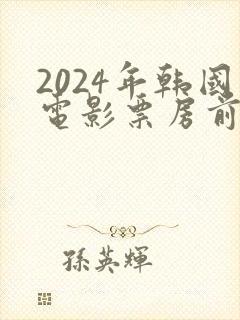 2024年韩國
電影票房前
孫英輝